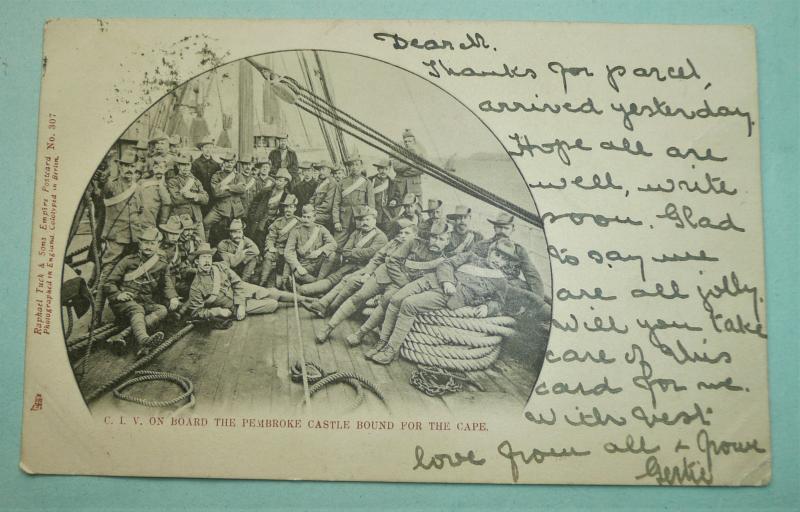 Raphael Tuck & Sons Empire Postcard No. 307
Photographed in England. Colotyped in Berlin.
C. I. V. ON BOARD THE PEMBROKE CASTLE BOUND FOR THE CAPE.
Dear M.
Thanks for parcel,
arrived yesterday.
Hope all are
well, write
soon. Glad
to say we
are all jolly.
Will you take
care of this
card for me.
With best
love from all & from
Gertie